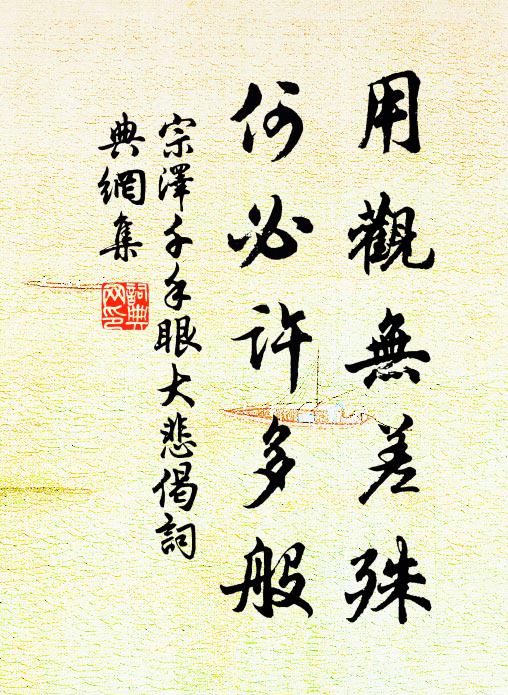 用觀無差殊
何必許多般
宗澤千手眼大悲偈詞
典網集
詞典網印